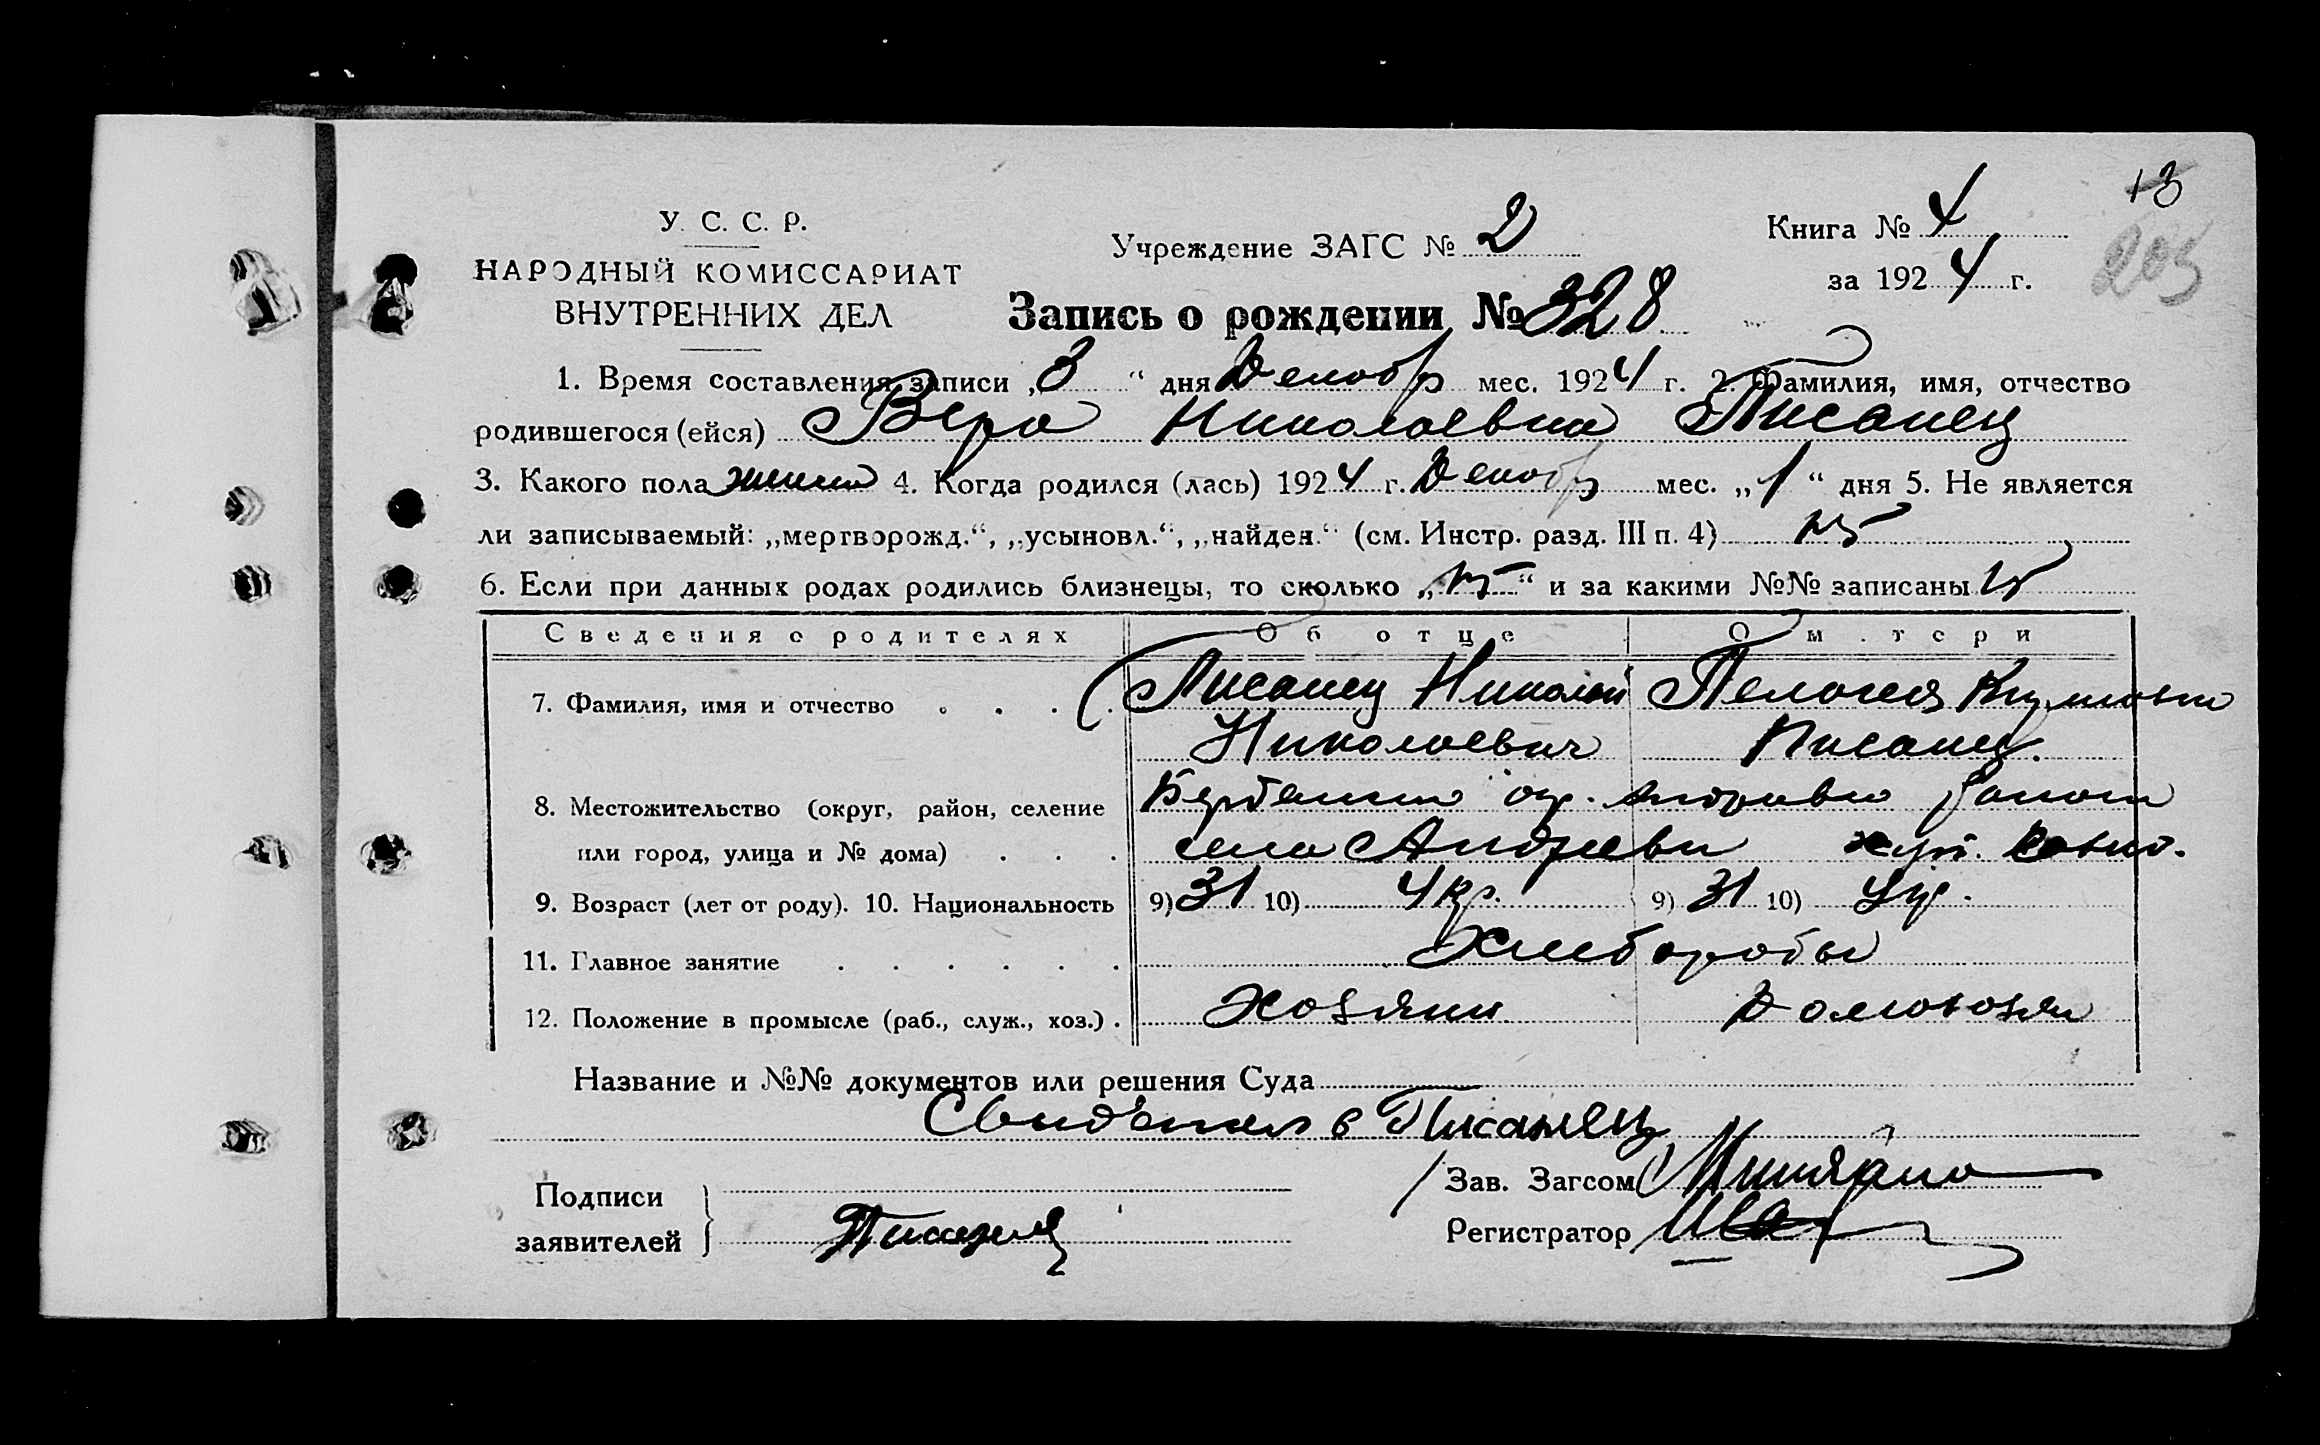 13
203
У. С. С. Р.
НАРОДНЫЙ КОМИССАРИАТ
ВНУТРЕННИХ ДЕЛ
Учреждение ЗАГС № 2
Книга № 4
за 1924 г.
Запись о рождении № 328
1. Время составления записи „3“ дня Декабр мес. 1924 г. 2. Фамилия, имя, отчество
родившегося (ейся) Вера Николаевна Писанец
3. Какого пола 4. Когда родился (лась) 1924 г. Декабр мес. „1“ дня 5. Не является
ли записываемый: „мертворожд.“, „усыновл.“, „найден.“ (см. Инстр. разд. III п. 4)
6. Если при данных родах родились близнецы, то сколько „ “ и за какими №№ записаны
Сведения о родителях Об отце О матери
7. Фамилия, имя и отчество . . . . Писанец Николай Пелагея
Николаевич Писанец.
8. Местожительство (округ, район, селение
или город, улица и № дома) . . . село хут.
9. Возраст (лет от роду). 10. Национальность 9) 31 10) Укр. 9) 31 10) Укр.
11. Главное занятие . . . . . . Хлеборобы
12. Положение в промысле (раб., служ., хоз.) . Хозяин Домохозяй
Название и №№ документов или решения Суда
в Писанец
Подписи
заявителей
Писанец
Зав. Загсом
Регистратор